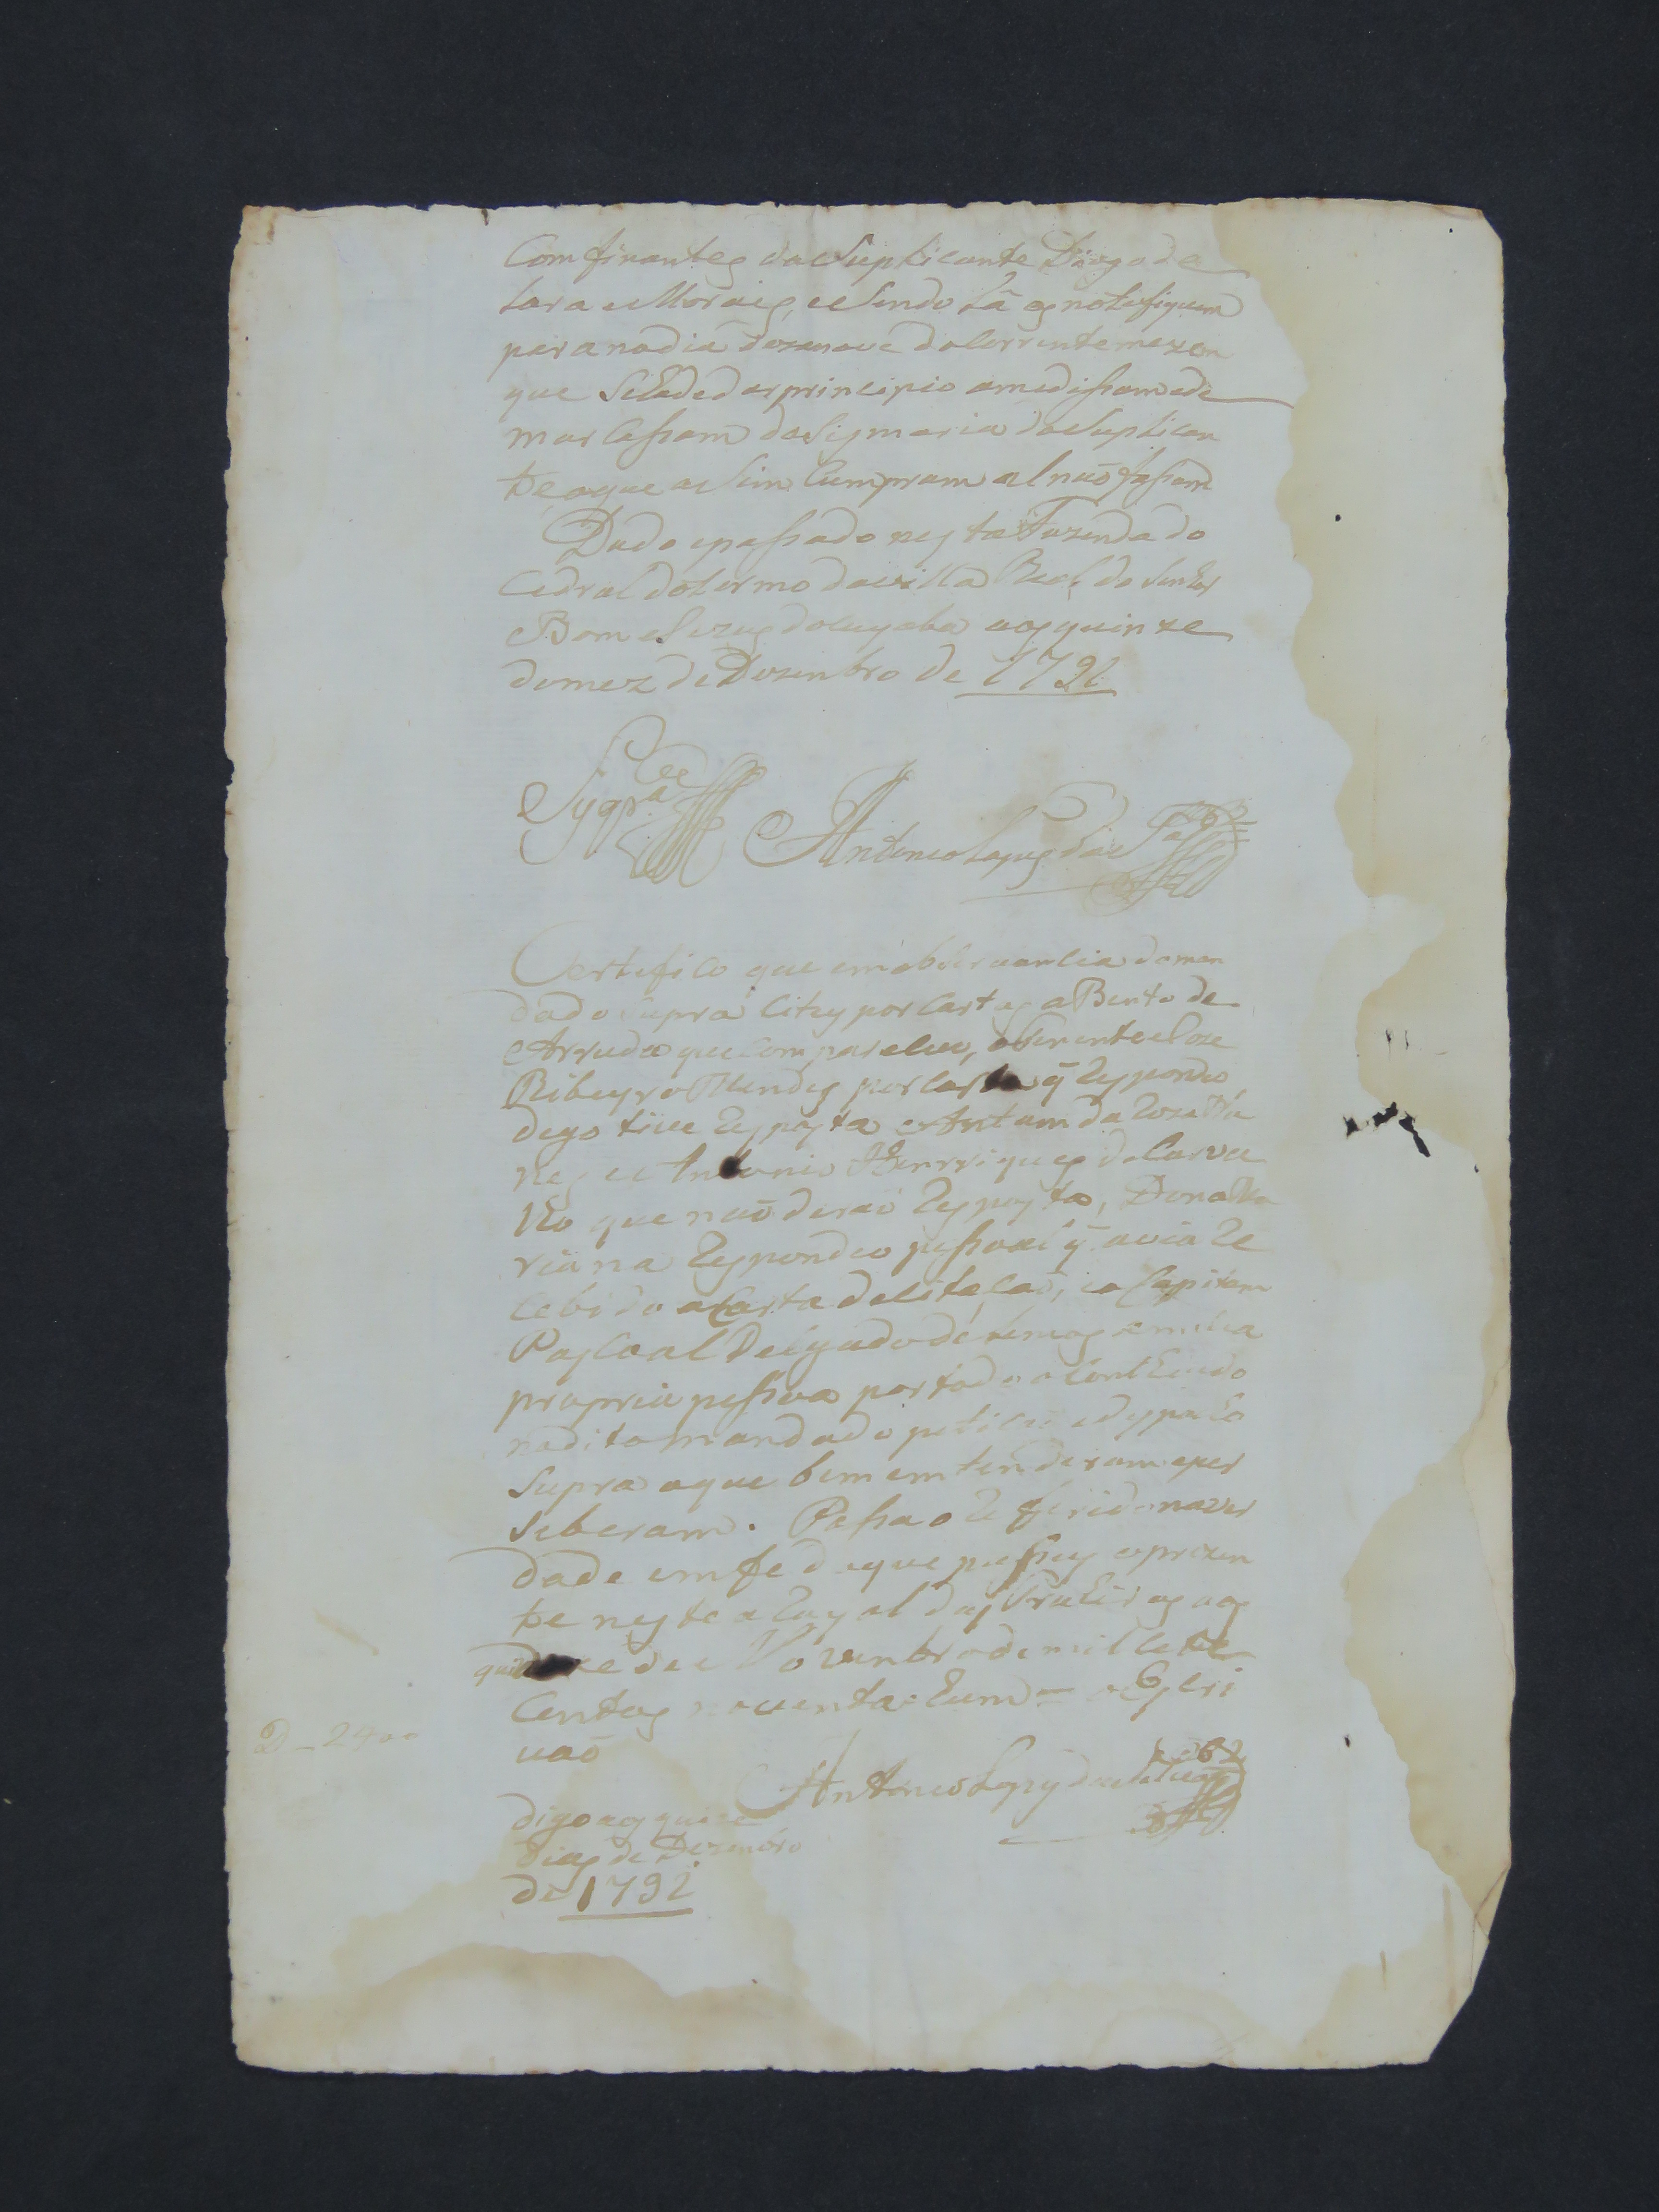 Comfinantes do Suplicante Diogo de
Lara e Morais, e Sendo Lâ os notefiquem
para no dia dezanove do Corrente mez em
que Se Ha de dar principio a medissam e de
marCassam da Sismaria do Suplican
te o que asim Cumpram al naõ fassam
Dado e passado nesta Fazenda do
Cedral do termo da villa Real do Senhor
Bom Jezus do Cuyaba aos quinze
do mez de Dezenbro de 1791
Antonio Lopes da
Certefico que em obServancia do man
dado Supra Citey por Cartas a Bento de
Arruda que Compareseu, o Tenente Joze
Ribeyro Mendes por Carta q̃ Respondeo
digo tive Resposta Antam da
nes e Antonio Henrriques de Carva
lho que naõ deraõ Resposta, Dona Ma
riana Respondeo pessoal q̃ avia Re
Cebido a Carta de Citaçaõ, e o Capitam
PasCoal Delgado de Lemos em Sua
propria pessoa por todo o Contheudo
no dito mandado petiçaõ e despacho
Supra o que bem emtenderam e per
Seberam. Passa o Refferido na ver
dade em fe de que passey o prezen
te neste a Rayal das aos
quinze de Novenbro de mil e Sete
Centos noventa e hum = o EsCri
vaõ
D - 2400
Antonio Lopes da
digo aos quinze
dias de Dezenbro
de 1791